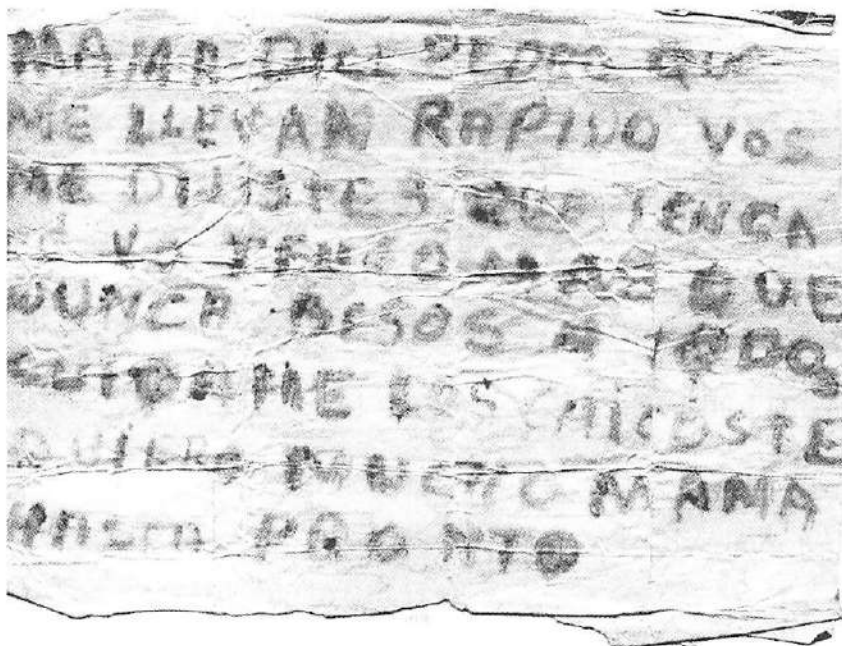 MAMA DICE PEDRO QUE
ME LLEVAN RAPIDO VOS
ME DIJISTES QUE TENGA
FE YO TENGO MAS QUE
NUNCA BESOS A TODOS
CUIDAME LOS CHICOS TE
QUIERO MUCHO MAMA
HASTA PRONTO